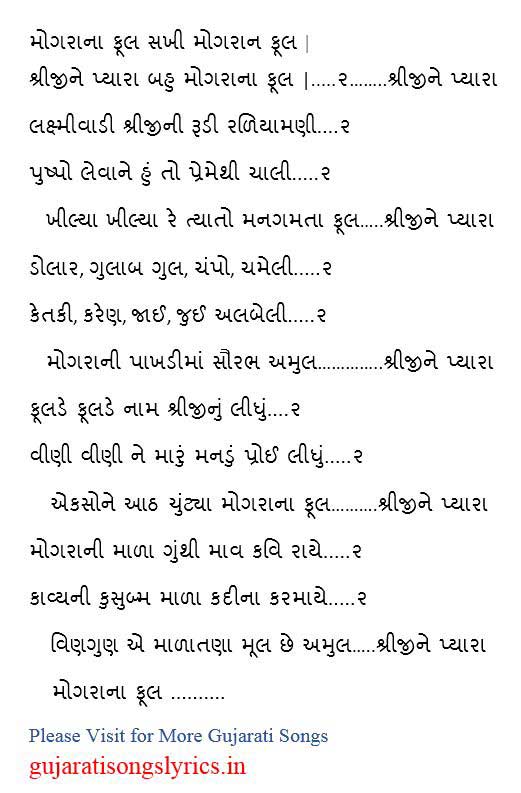 મોગરાના ફૂલ સખી મોગરાન ફૂલ |
શ્રીજીને પ્યારા બહુ મોગરાના ફૂલ |.....૨........શ્રીજીને પ્યારા
લક્ષ્મીવાડી શ્રીજીની રૂડી રળિયામણી....૨
પુષ્પો લેવાને હું તો પ્રેમેથી ચાલી.....૨
ખીલ્યા ખીલ્યા રે ત્યાતો મનગમતા ફૂલ.....શ્રીજીને પ્યારા
ડોલાર, ગુલાબ ગુલ, ચંપો, ચમેલી.....૨
કેતકી, કરેણ, જાઈ, જુઈ અલબેલી.....૨
મોગરાની પાખડીમાં સૌરભ અમુલ..............શ્રીજીને પ્યારા
ફૂલડે ફૂલડે નામ શ્રીજીનું લીધું....૨
વીણી વીણી ને મારું મનડું પ્રોઈ લીધું.....૨
એકસોને આઠ ચુંટ્યા મોગરાના ફૂલ..........શ્રીજીને પ્યારા
મોગરાની માળા ગુંથી માવ કવિ રાયે.....૨
કાવ્યની કુસુબ્મ માળા કદીના કરમાયે.....૨
વિણગુણ એ માળાતણા મૂલ છે અમુલ.....શ્રીજીને પ્યારા
મોગરાના ફૂલ ..........
Please Visit for More Gujarati Songs
gujaratisongslyrics.in